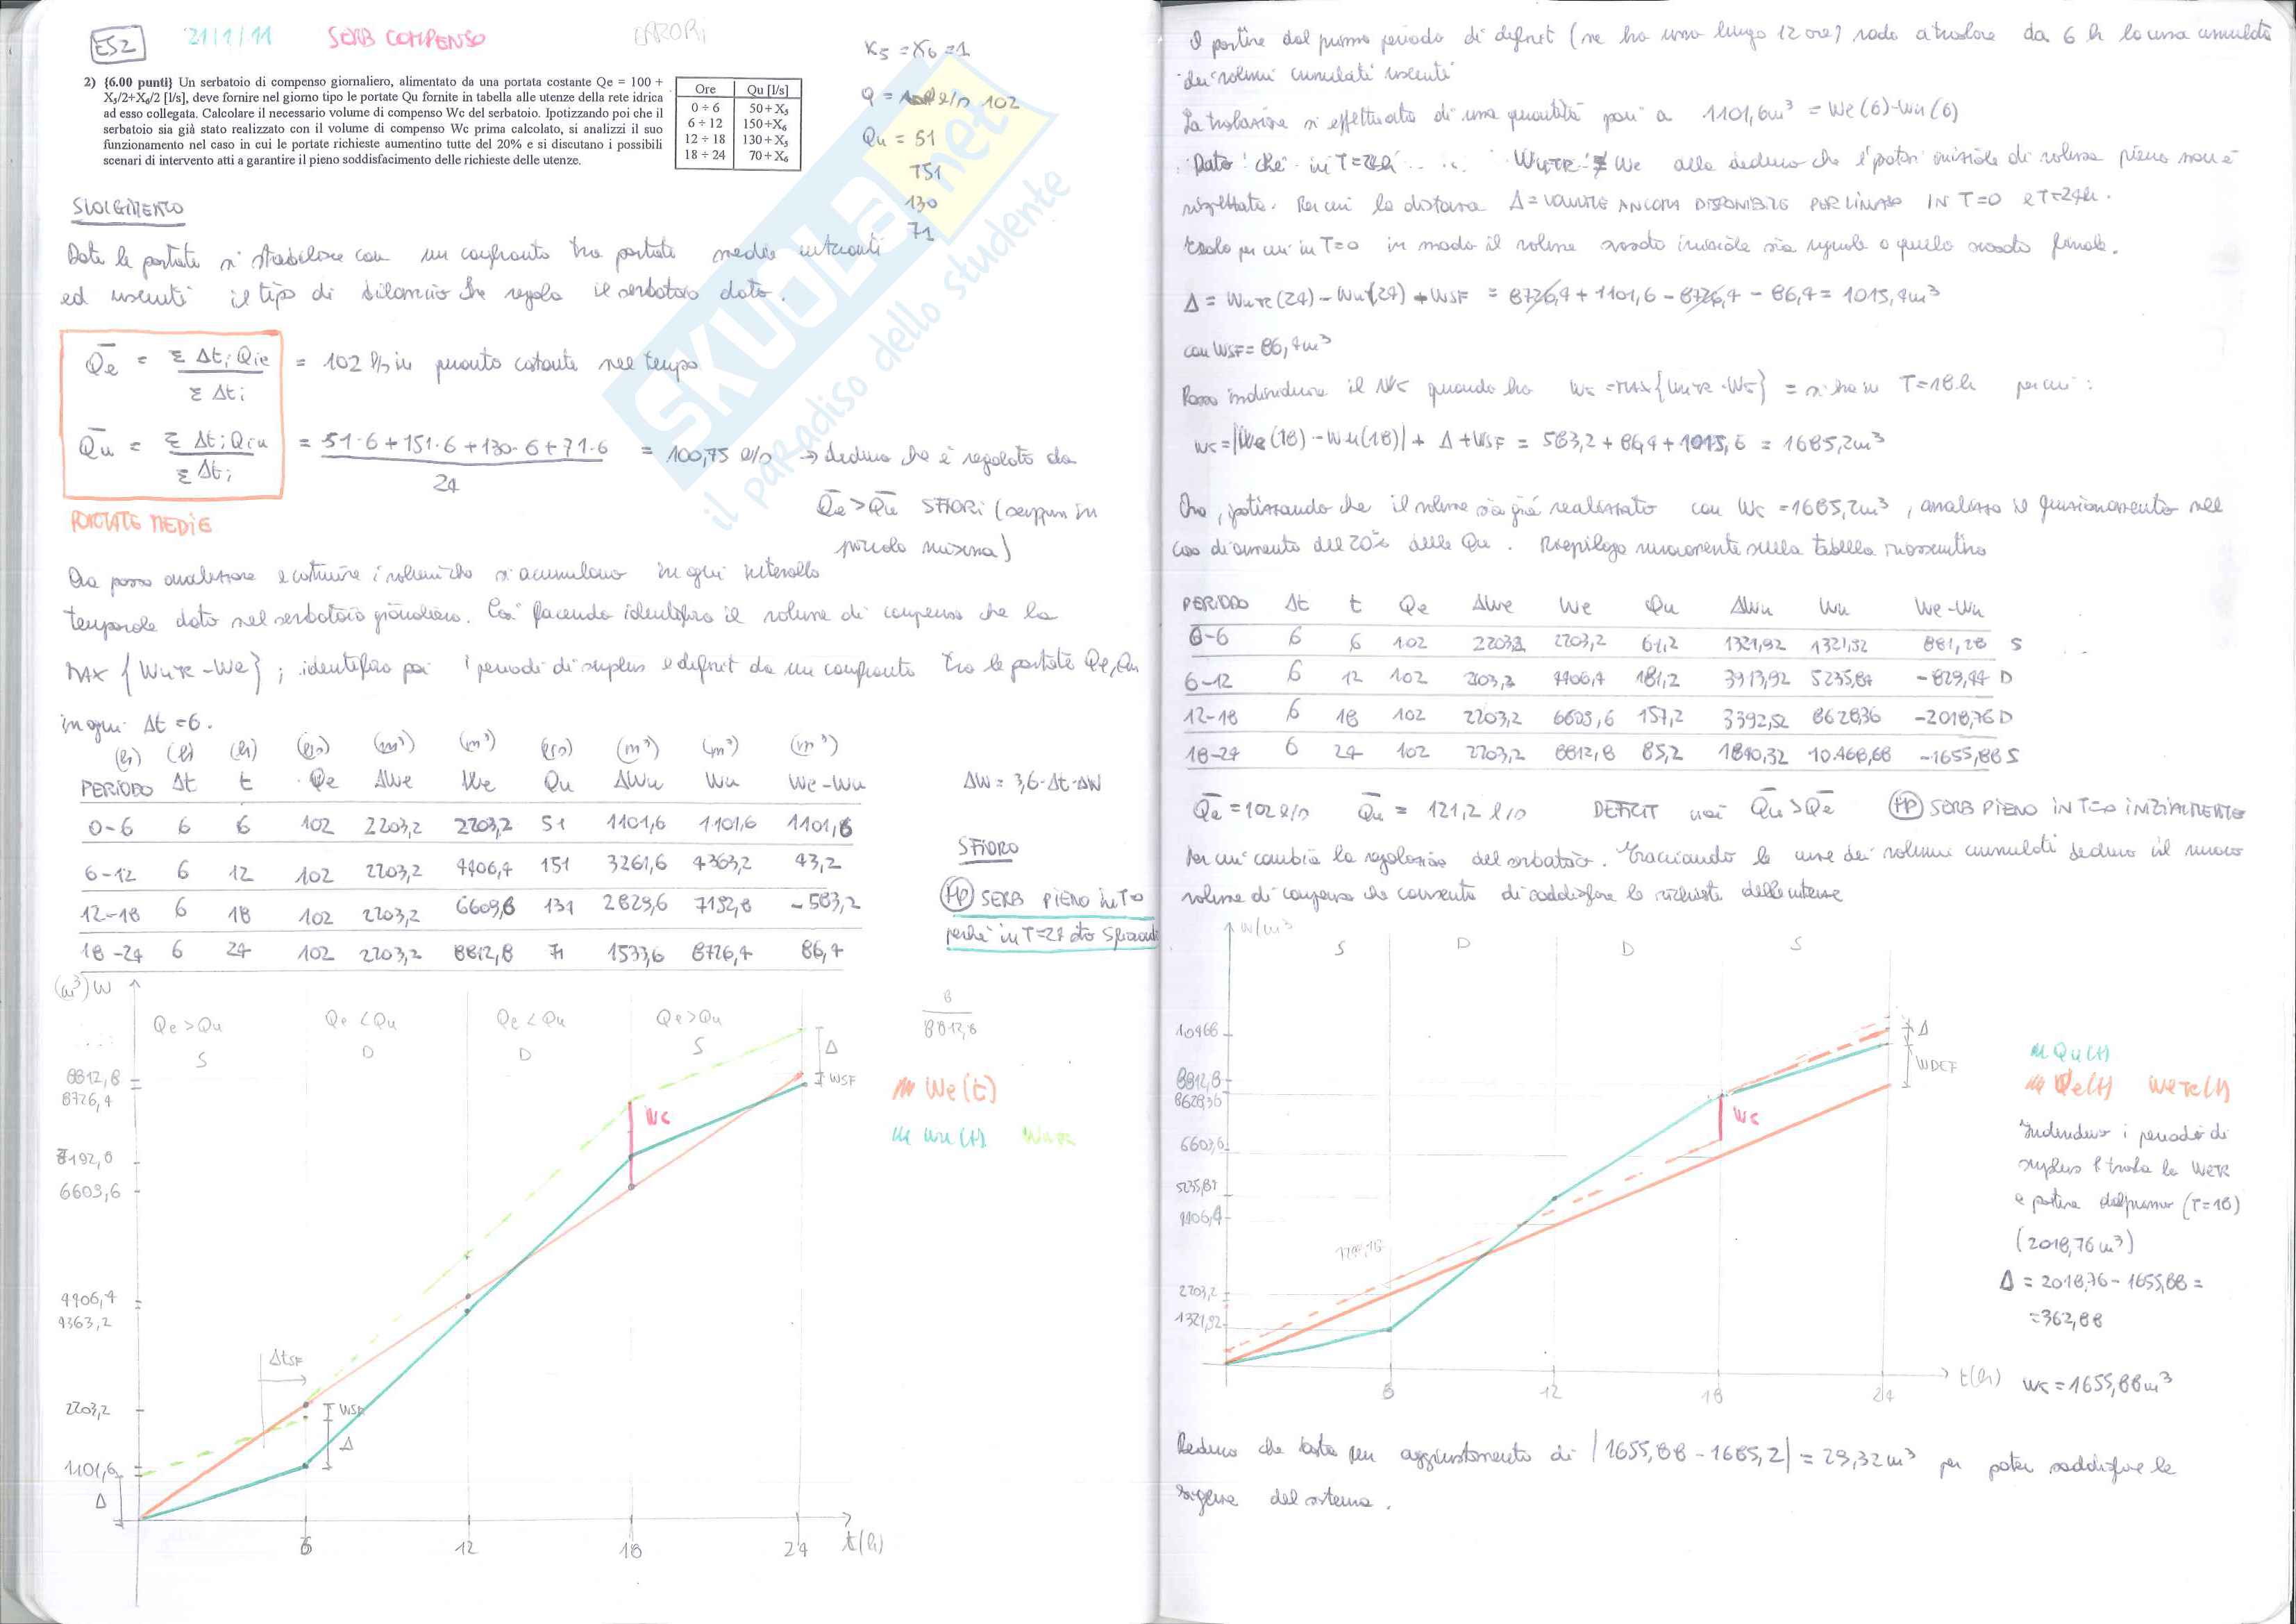 ES2
21/1/11
SERB COMPENSO
ERRORI
2) {6.00 punti} Un serbatoio di compenso giornaliero, alimentato da una portata costante Qe = 100 +
X₅/2+X₆/2 [l/s], deve fornire nel giorno tipo le portate Qu fornite in tabella alle utenze della rete idrica
ad esso collegata. Calcolare il necessario volume di compenso Wc del serbatoio. Ipotizzando poi che il
serbatoio sia già stato realizzato con il volume di compenso Wc prima calcolato, si analizzi il suo
funzionamento nel caso in cui le portate richieste aumentino tutte del 20% e si discutano i possibili
scenari di intervento atti a garantire il pieno soddisfacimento delle richieste delle utenze.
Ore Qu [l/s]
0 ÷ 6 50+X₅
6 ÷ 12 150+X₆
12 ÷ 18 130+X₅
18 ÷ 24 70+X₆
X5 = X6 = 1
Q = l/s 102
Qu = 51
151
130
71
SVOLGIMENTO
Date le portate si stabilisce con un confronto tra portate medie entranti
ed uscenti il tipo di bilancio che regola il serbatoio dato.
Qe = Σ Δti Qie / Σ Δti = 102 l/s in quanto costante nel tempo
Qu = Σ Δti Qiu / Σ Δti = 51·6+151·6+130·6+71·6 / 24 = 100,75 l/s → deduco che è regolato da
Qe > Qu SFIORI (seppur in
piccola misura)
PORTATE MEDIE
Ora posso analizzare e costruire i volumi che si accumulano in ogni intervallo
temporale dato nel serbatoio giornaliero. Così facendo identifico il volume di compenso che ha
MAX {WuTR - We} ; identifico poi i periodi di surplus e deficit da un confronto tra le portate Qe, Qu
in ogni Δt = 6.
(h) (h) (h) (l/s) (m³) (m³) (l/s) (m³) (m³) (m³)
PERIODO Δt t Qe ΔWe We Qu ΔWu Wu We-Wu
0-6 6 6 102 2203,2 2203,2 51 1101,6 1101,6 1101,6
6-12 6 12 102 2203,2 4406,4 151 3261,6 4363,2 43,2
12-18 6 18 102 2203,2 6609,6 131 2829,6 7192,8 -583,2
18-24 6 24 102 2203,2 8812,8 71 1533,6 8726,4 86,4
ΔW = 3,6·Δt·ΔW
SFIORO
(HP) SERB PIENO in T0
perché in T=24 sto sfiorando
(m³) W
Qe > Qu
S
Qe < Qu
D
Qe < Qu
D
Qe > Qu
S
8
8812,8
Δ
WSF
8812,8
8726,4
We(t)
Wu(t) WuTR
Wc
7192,8
6603,6
4406,4
4363,2
ΔtSF
2203,2
WSF
Δ
1101,6
Δ
6 12 18 24 t(h)
A partire dal primo periodo di deficit (ne ho uno lungo 12 ore) vado a traslare da 6 h la curva cumulata
dei volumi cumulati uscenti
La traslazione si effettuata di una quantità pari a 1101,6m³ = We(6)-Wu(6)
Dato che in T=24h WuTR ≠ We allora deduco che l'ipotesi iniziale di volume pieno non è
rispettata. Per cui la distanza Δ = VOLUME ANCORA DISPONIBILE PER L'INVASO IN T=0 e T=24h.
Traslo per cui in T=0 in modo il volume svasato iniziale sia uguale a quello svasato finale.
Δ = WuTR(24) - Wu(24) + WSF = 8726,4 + 1101,6 - 8726,4 - 86,4 = 1015,4m³
con WSF = 86,4m³
Posso individuare il Wc quando ho Wc = MAX{WuTR - We} = si ha in T=18h per cui :
Wc = |We(18) - Wu(18)| + Δ + WSF = 583,2 + 86,4 + 1015,6 = 1685,2m³
Ora, ipotizzando che il volume sia già realizzato con Wc = 1685,2m³, analizzo il funzionamento nel
caso di aumento del 20% delle Qu. Riepilogo nuovamente nella tabella riassuntiva
PERIODO Δt t Qe ΔWe We Qu ΔWu Wu We-Wu
0-6 6 6 102 2203,2 2203,2 61,2 1321,92 1321,92 881,28 S
6-12 6 12 102 2203,2 4406,4 181,2 3913,92 5235,84 -829,44 D
12-18 6 18 102 2203,2 6609,6 157,2 3392,52 8628,36 -2018,76 D
18-24 6 24 102 2203,2 8812,8 85,2 1840,32 10.468,68 -1655,88 S
Qe = 102 l/s Qu = 121,2 l/s DEFICIT Qu > Qe (HP) SERB PIENO IN T=0 INIZIALMENTE
Per cui cambia la regolazione del serbatoio. Tracciando le curve dei volumi cumulati deduco il nuovo
volume di compenso che consente di soddisfare le richieste delle utenze
W/m³
S D D S
10468
8812,8
8628,36
6603,6
5235,84
4406,4
2203,2
1321,92
Wc
Δ
WDEF
6 12 18 24 t(h)
Qu(t)
Qe(t) WeTR(t)
Individuo i periodi di
surplus e traslo la WeTR
a partire dal primo (T=18)
(2018,76m³)
Δ = 2018,76 - 1655,88 =
= 362,88
Wc = 1655,88m³
Deduco che basta un aggiustamento di |1655,88 - 1685,2| = 29,32m³ per poter soddisfare le
esigenze del sistema.
SKUOLA.net
il paradiso dello studente